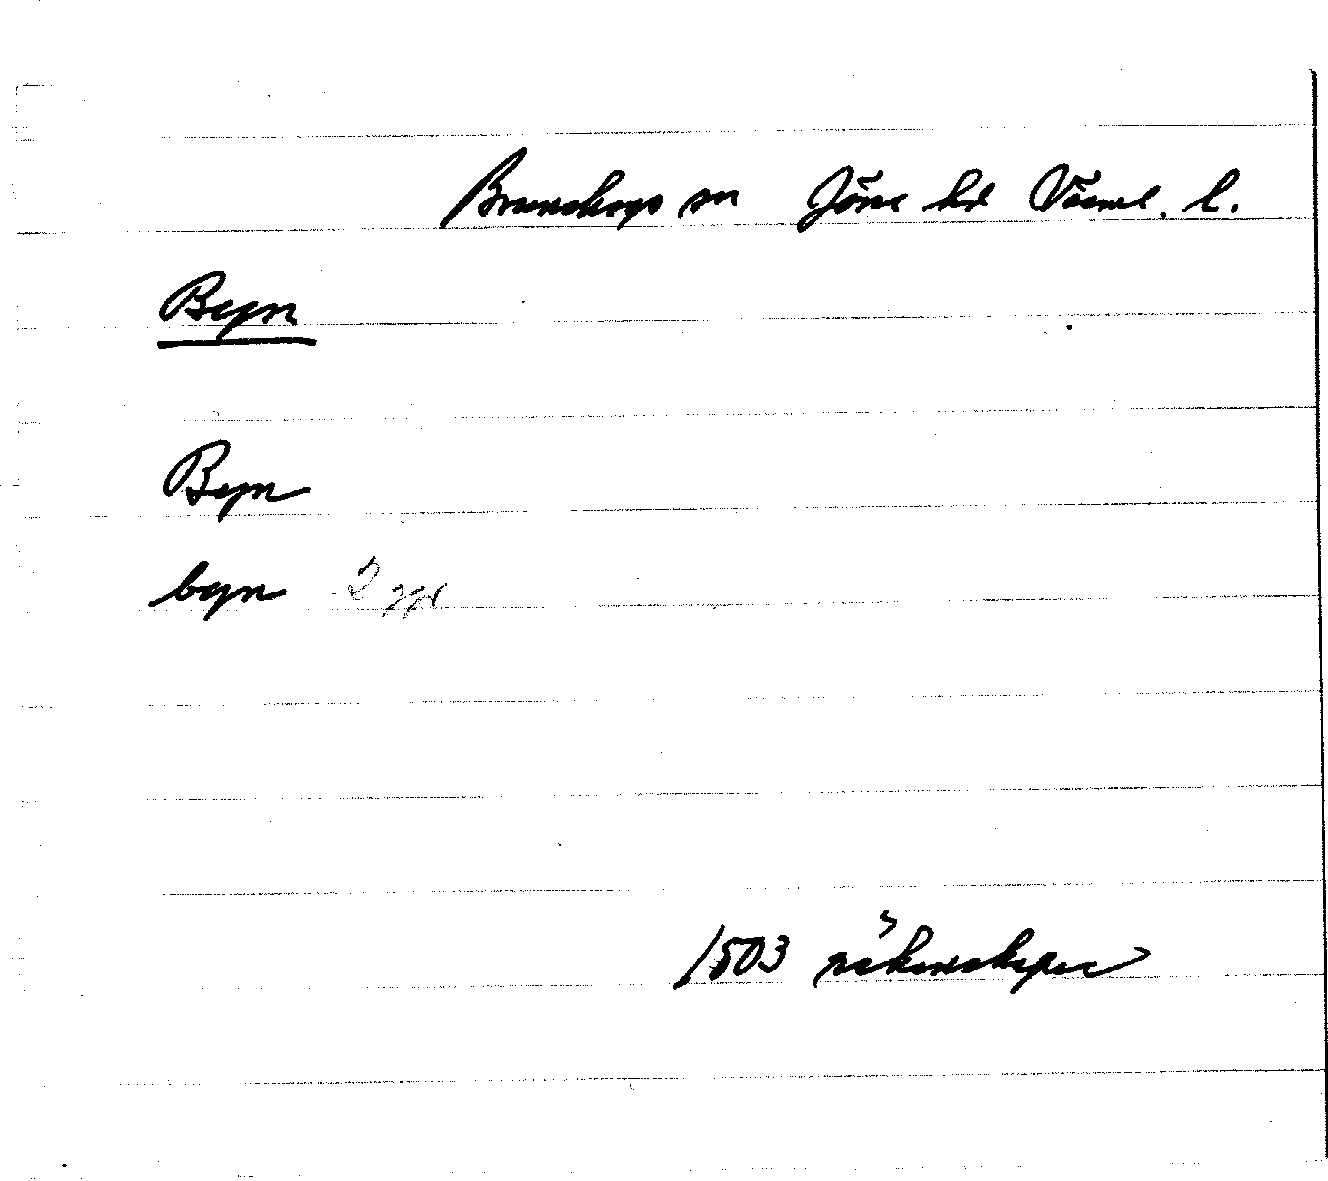 Brunskogs sn Jöss hd Värml. l.
Byn
Byn
byn 2 ggr
1503 räkenskaper